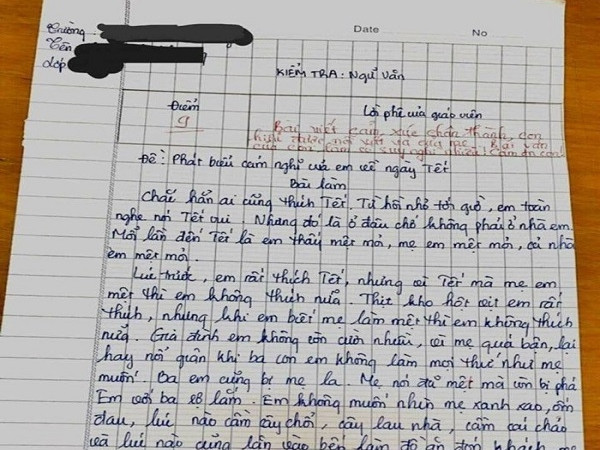 Date No
Trường:
Tên
Lớp
KIỂM TRA: NGỮ VĂN
Điểm Lời phê của giáo viên
9 Bài viết cảm xúc chân thành, con
hiểu được nỗi vất vả của mẹ. Bài văn
của con làm cô suy nghĩ nhiều! Cảm ơn con!
Đề: Phát biểu cảm nghĩ của em về ngày Tết
Bài làm
Chắc hẳn ai cũng thích Tết. Từ hồi nhỏ tới giờ, em toàn
nghe nói Tết vui. Nhưng đó là ở đâu chớ không phải ở nhà em.
Mỗi lần đến Tết là em thấy mệt mỏi, mẹ em mệt mỏi, cả nhà
em mệt mỏi.
Lúc trước, em rất thích Tết, nhưng vì Tết mà mẹ em
mệt thì em không thích nữa. Thịt kho hột vịt em rất
thích, nhưng khi em biết mẹ làm mệt thì em không thích
nữa. Gia đình em không còn cười nhiều, vì mẹ quá bận, lại
hay nổi giận khi ba con em không làm mọi thứ như mẹ
muốn. Ba em cũng bị mẹ la. Mẹ nói đã mệt mà còn bị phá
Em với ba sợ lắm. Em không muốn nhìn mẹ xanh xao, ốm
đau, lúc nào cầm cây chổi, cây lau nhà, cầm cái chảo
và lúc nào cũng lẩn vào bếp làm đồ ăn đón khách mẹ